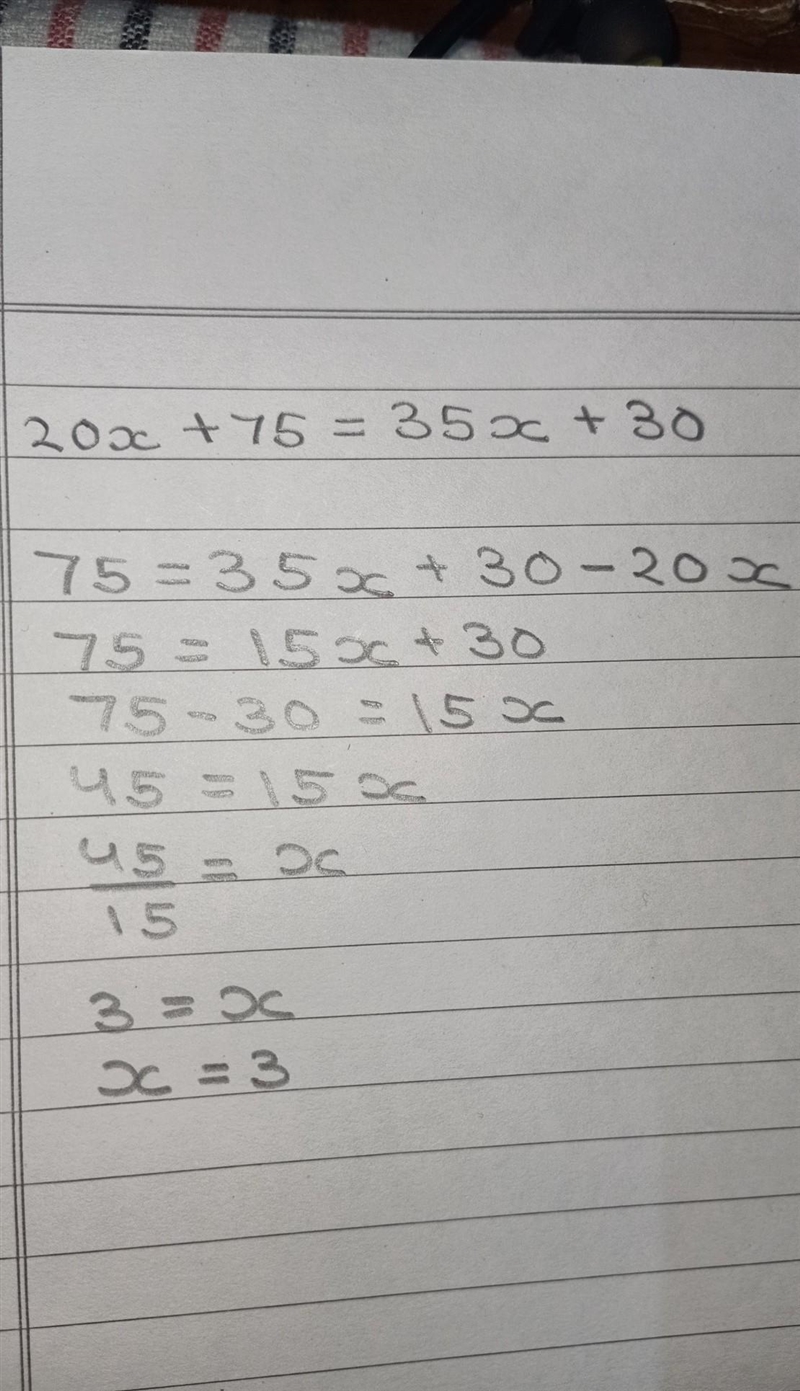 20x + 75 = 35x + 30
75 = 35x + 30 - 20x
75 = 15x + 30
75 - 30 = 15x
45 = 15x
45/15 = x
3 = x
x = 3